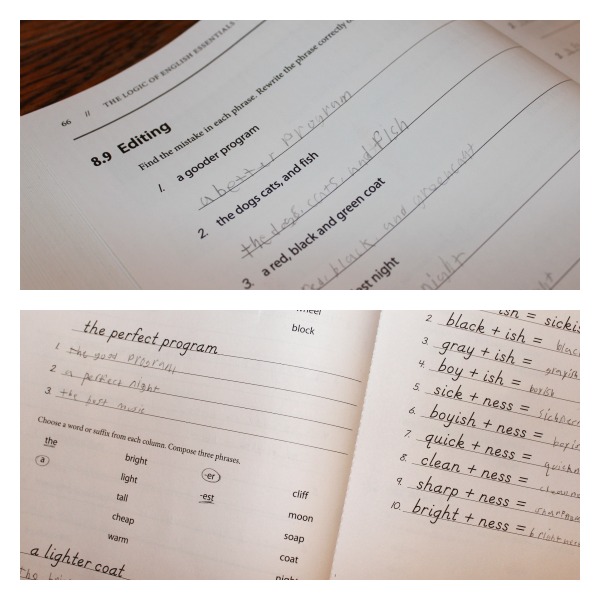 66 // THE LOGIC OF ENGLISH ESSENTIALS
8.9 Editing
Find the mistake in each phrase. Rewrite the phrase correctly
1. a gooder program
a better program
2. the dogs cats, and fish
the dogs, cats, and fish
3. a red, black and green coat
red, black and green coat
est night
night
wheel
block
the perfect program
1. the good program
2. a perfect night
3. the best music
Choose a word or suffix from each column. Compose three phrases.
the bright -er cliff
a light -est moon
tall soap
cheap coat
warm night
a lighter coat
ish = sickis
2. black + ish = blac
3. gray + ish = grayish
4. boy + ish = boyish
5. sick + ness = sickness
6. boyish + ness =
7. quick + ness = quickn
8. clean + ness =
9. sharp + ness =
10. bright + ness = brightness